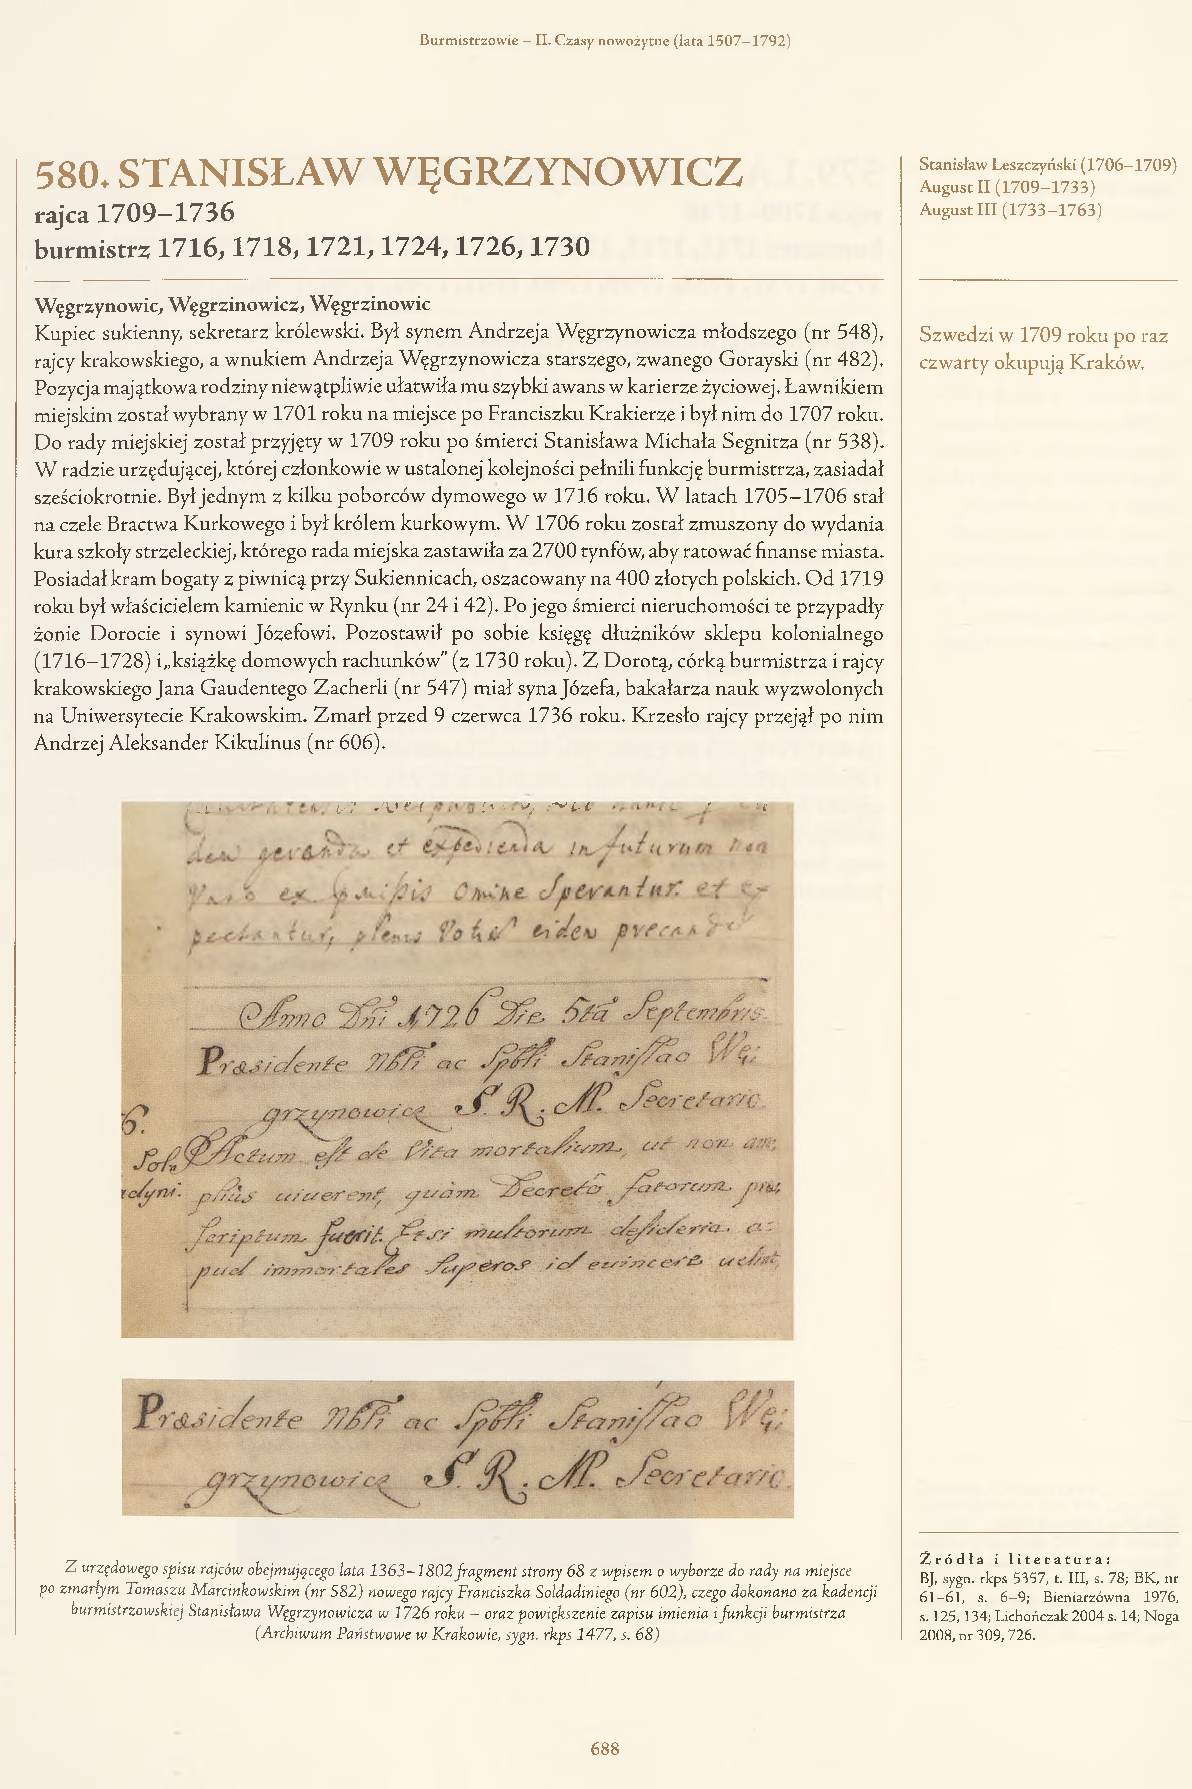 Burmistrzowie – II. Czasy nowożytne (lata 1507–1792)
580. STANISŁAW WĘGRZYNOWICZ
rajca 1709–1736
burmistrz 1716, 1718, 1721, 1724, 1726, 1730
Węgrzynowic, Węgrzinowicz, Węgrzinowic
Kupiec sukienny, sekretarz królewski. Był synem Andrzeja Węgrzynowicza młodszego (nr 548),
rajcy krakowskiego, a wnukiem Andrzeja Węgrzynowicza starszego, zwanego Gorayski (nr 482).
Pozycja majątkowa rodziny niewątpliwie ułatwiła mu szybki awans w karierze życiowej. Ławnikiem
miejskim został wybrany w 1701 roku na miejsce po Franciszku Krakierze i był nim do 1707 roku.
Do rady miejskiej został przyjęty w 1709 roku po śmierci Stanisława Michała Segnitza (nr 538).
W radzie urzędującej, której członkowie w ustalonej kolejności pełnili funkcję burmistrza, zasiadał
sześciokrotnie. Był jednym z kilku poborców dymowego w 1716 roku. W latach 1705–1706 stał
na czele Bractwa Kurkowego i był królem kurkowym. W 1706 roku został zmuszony do wydania
kura szkoły strzeleckiej, którego rada miejska zastawiła za 2700 tynfów, aby ratować finanse miasta.
Posiadał kram bogaty z piwnicą przy Sukiennicach, oszacowany na 400 złotych polskich. Od 1719
roku był właścicielem kamienic w Rynku (nr 24 i 42). Po jego śmierci nieruchomości te przypadły
żonie Dorocie i synowi Józefowi. Pozostawił po sobie księgę dłużników sklepu kolonialnego
(1716–1728) i „książkę domowych rachunków" (z 1730 roku). Z Dorotą, córką burmistrza i rajcy
krakowskiego Jana Gaudentego Zacherli (nr 547) miał syna Józefa, bakałarza nauk wyzwolonych
na Uniwersytecie Krakowskim. Zmarł przed 9 czerwca 1736 roku. Krzesło rajcy przejął po nim
Andrzej Aleksander Kikulinus (nr 606).
et expedienda in futurum non
ex omine sperantur et ex
pectantur, plenis Votis eidem precand
Anno Dni 1726 Die 5ta Septembris.
Præsidente Nbli ac Spbli Stanislao Wę:
grzynowicz S. R. M. Secretario.
6.
Actum est de Vita mortalium, ut non am:
plius uiuerent, quam Decreto fatorum præ
scriptum fuerit. Etsi multorum desideria a:
pud immortales Superos id euincere uelint,
Præsidente Nbli ac Spbli Stanislao Wę:
grzynowicz S. R. M. Secretario.
Z urzędowego spisu rajców obejmującego lata 1363–1802 fragment strony 68 z wpisem o wyborze do rady na miejsce
po zmarłym Tomaszu Marcinkowskim (nr 582) nowego rajcy Franciszka Soldadiniego (nr 602), czego dokonano za kadencji
burmistrzowskiej Stanisława Węgrzynowicza w 1726 roku – oraz powiększenie zapisu imienia i funkcji burmistrza
(Archiwum Państwowe w Krakowie, sygn. rkps 1477, s. 68)
Stanisław Leszczyński (1706–1709)
August II (1709–1733)
August III (1733–1763)
Szwedzi w 1709 roku po raz
czwarty okupują Kraków.
Źródła i literatura:
BJ, sygn. rkps 5357, t. III, s. 78; BK, nr
61–61, s. 6–9; Bieniarzówna 1976,
s. 125, 134; Lichończak 2004 s. 14; Noga
2008, nr 309, 726.
688